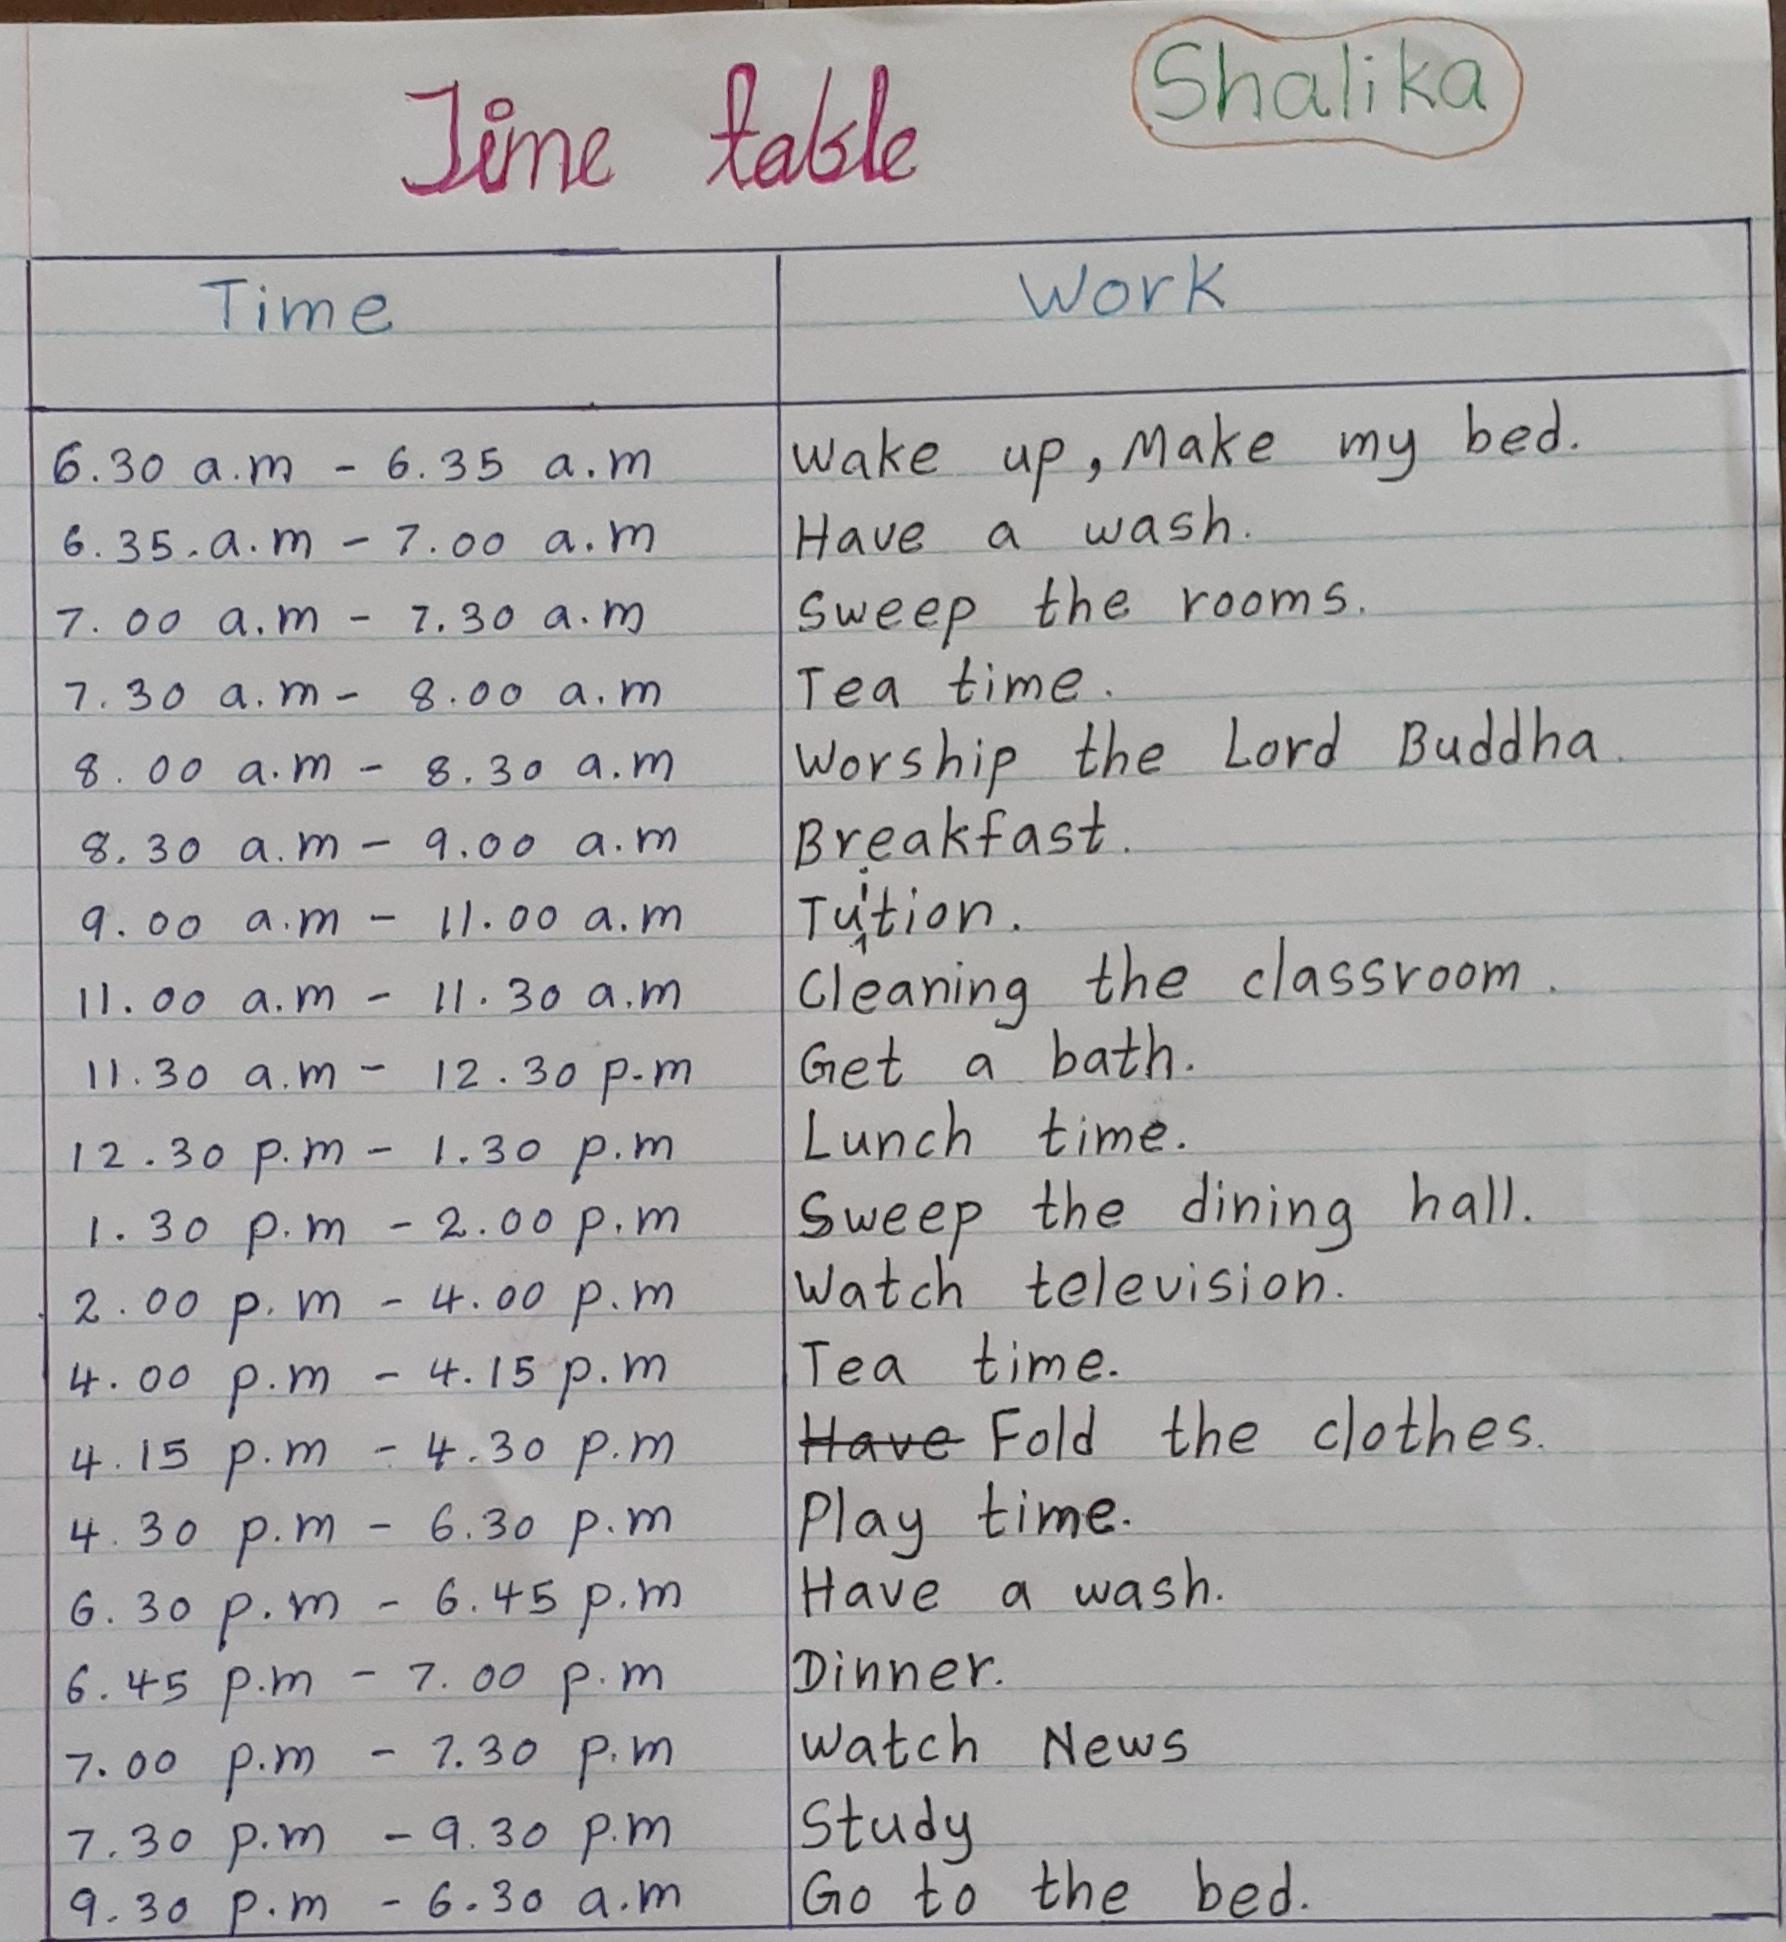 Time table
Shalika
Time Work
6.30 a.m - 6.35 a.m Wake up, Make my bed.
6.35.a.m - 7.00 a.m Have a wash.
7.00 a.m - 7.30 a.m Sweep the rooms.
7.30 a.m - 8.00 a.m Tea time.
8.00 a.m - 8.30 a.m Worship the Lord Buddha.
8.30 a.m - 9.00 a.m Breakfast.
9.00 a.m - 11.00 a.m Tuition.
11.00 a.m - 11.30 a.m Cleaning the classroom.
11.30 a.m - 12.30 p.m Get a bath.
12.30 p.m - 1.30 p.m Lunch time.
1.30 p.m - 2.00 p.m Sweep the dining hall.
2.00 p.m - 4.00 p.m Watch television.
4.00 p.m - 4.15 p.m Tea time.
4.15 p.m - 4.30 p.m Have Fold the clothes.
4.30 p.m - 6.30 p.m Play time.
6.30 p.m - 6.45 p.m Have a wash.
6.45 p.m - 7.00 p.m Dinner.
7.00 p.m - 7.30 p.m Watch News
7.30 p.m - 9.30 p.m Study
9.30 p.m - 6.30 a.m Go to the bed.